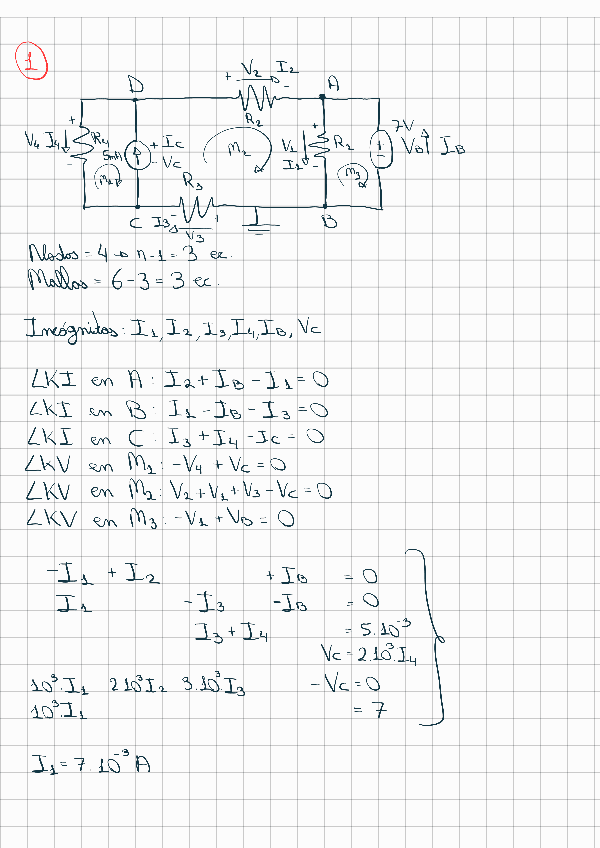 1
D
V2 I2
A
+
-
R2
V4 I4
+
R4
-
5mA
+ IC
- VC
M1
M2
V1
I1
+
R1
-
M3
7V
VB
IB
R3
C
I3
-
+
V3
B
Nodos = 4 → n-1 = 3 ec.
Mallas = 6-3 = 3 ec.
Incógnitas: I1, I2, I3, I4, IB, VC
LKI en A: I2 + IB - I1 = 0
LKI en B: I1 - IB - I3 = 0
LKI en C: I3 + I4 - IC = 0
LKV en M1: -V4 + VC = 0
LKV en M2: V2 + V1 + V3 - VC = 0
LKV en M3: -V1 + VB = 0
-I1 + I2 + IB = 0
I1 - I3 - IB = 0
I3 + I4 = 5.10^-3
VC = 2.10^3.I4
10^3.I1 2 10^3 I2 3.10^3.I3 - VC = 0
10^3.I1 = 7
I1 = 7.10^-3 A